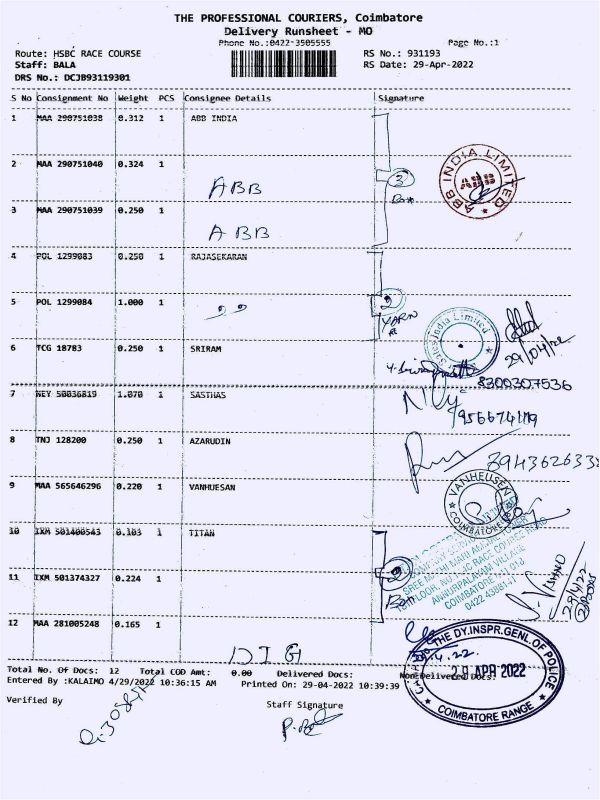 THE PROFESSIONAL COURIERS, Coimbatore
Delivery Runsheet - MO
Phone No.:0422-3505555
Page No.:1
Route: HSBC RACE COURSE
RS No.: 931193
Staff: BALA
RS Date: 29-Apr-2022
DRS No.: DCJB93119301
S No Consignment No Weight PCS Consignee Details Signature
1 MAA 290751038 0.312 1 ABB INDIA
2 MAA 290751040 0.324 1
ABB
3
3 MAA 290751039 0.250 1
ABB
ABB INDIA LIMITED
4 POL 1299083 0.250 1 RAJASEKARAN
5 POL 1299084 1.000 1
2
YARN
India Limited
29/04/22
6 TCG 18783 0.250 1 SRIRAM
8300307536
7 NEY 50036819 1.070 1 SASTHAS
8 TNJ 128200 0.250 1 AZARUDIN
9 MAA 565646296 0.220 1 VANHUESAN
VANHEUSEN
COIMBATORE
10 IXM 501400543 0.103 1 TITAN
11 IXM 501374327 0.224 1
COIMBATORE
29/4/22
12 MAA 281005248 0.165 1
DIG
THE DY.INSPR.GENL.OF POLICE
29 APR 2022
COIMBATORE RANGE
Total No. Of Docs: 12 Total COD Amt: 0.00 Delivered Docs: Non Delivered Docs:
Entered By :KALAIMO 4/29/2022 10:36:15 AM Printed On: 29-04-2022 10:39:39
Verified By
Staff Signature